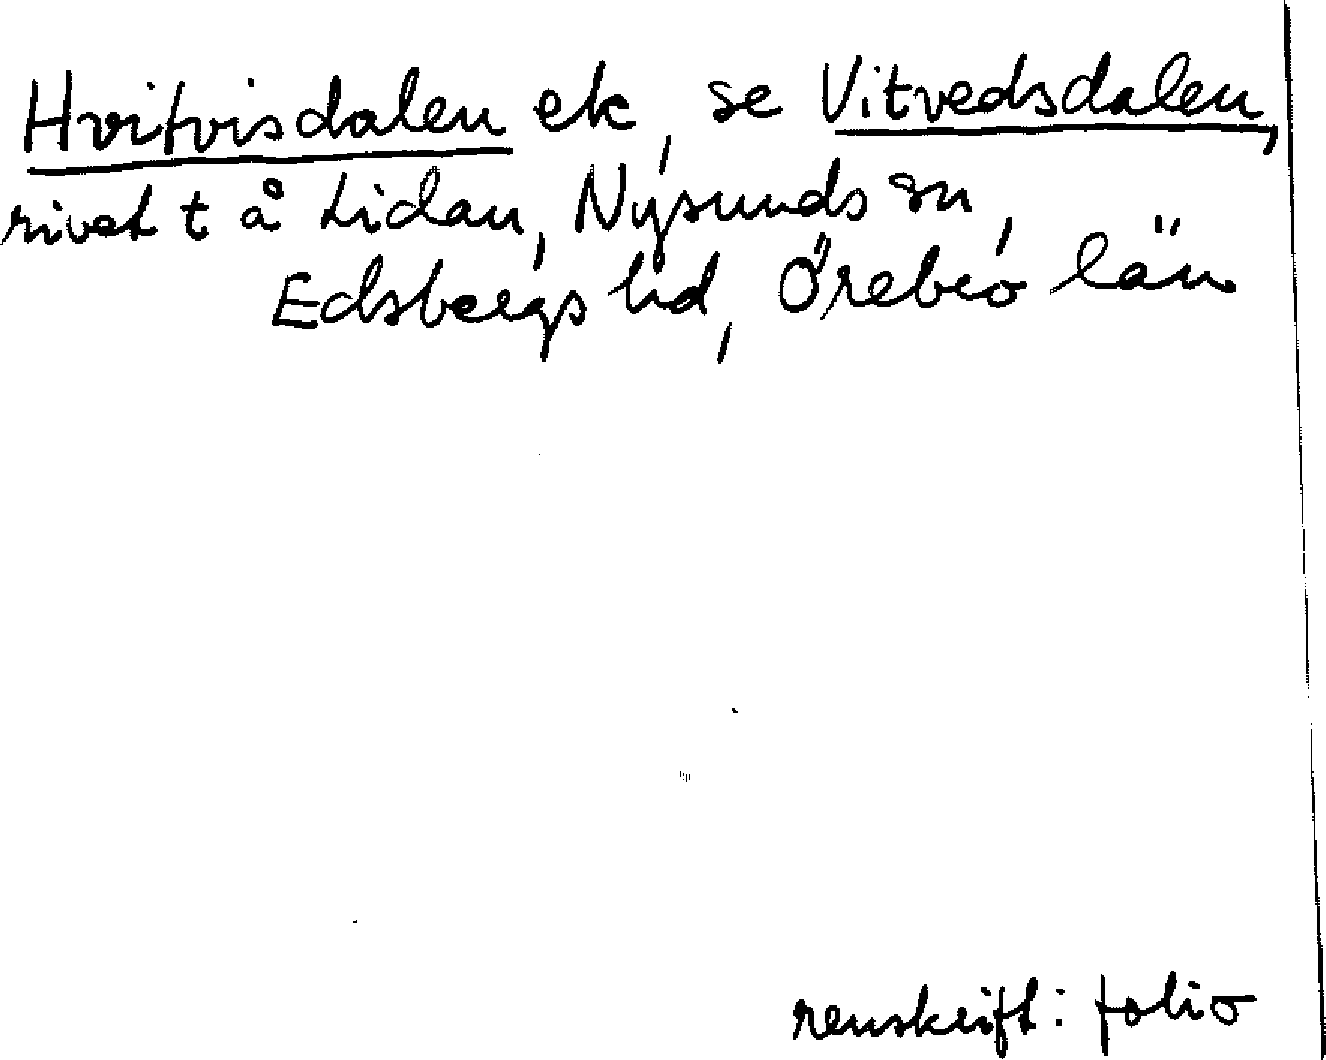 Hvitvisdalen ek, se Vitvedsdalen,
rivet t å Lidan, Nysunds sn,
Edsbergs hd, Örebro län
renskrift: folio